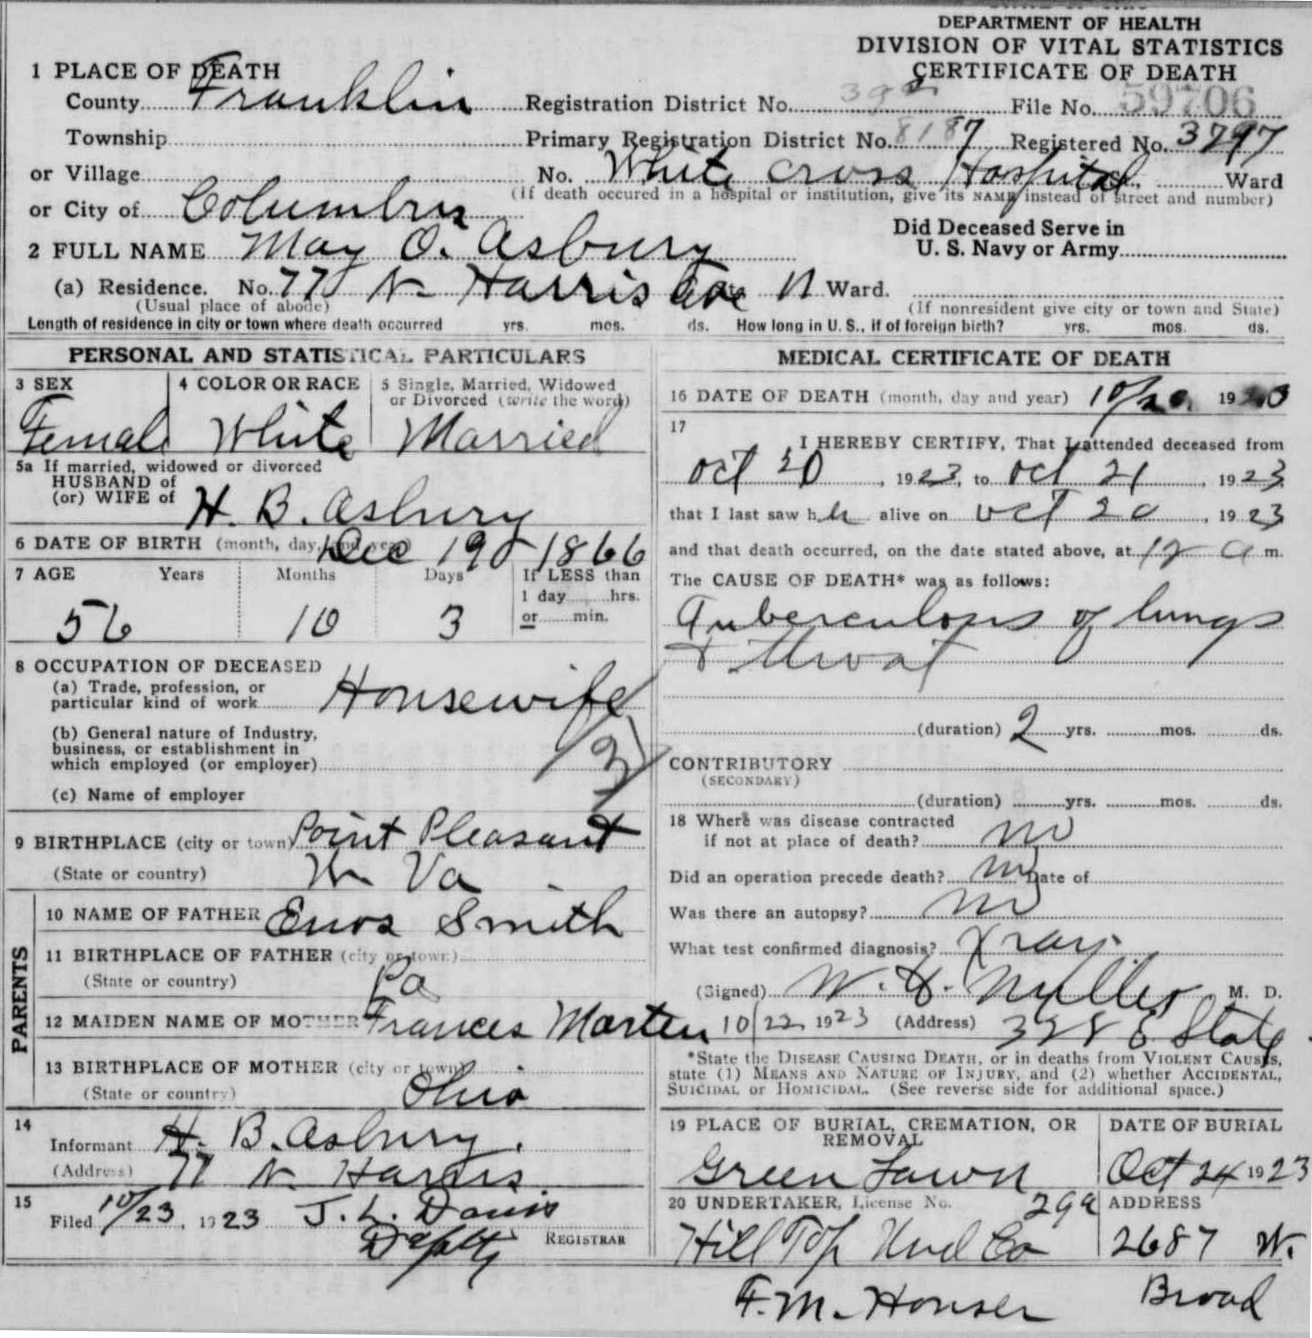 DEPARTMENT OF HEALTH
DIVISION OF VITAL STATISTICS
CERTIFICATE OF DEATH
1 PLACE OF DEATH
County Franklin Registration District No. 392 File No. 59706
Township Primary Registration District No. 8187 Registered No. 3797
or Village No. White Cross Hospital Ward
(If death occured in a hospital or institution, give its NAME instead of street and number)
or City of Columbus
Did Deceased Serve in
U. S. Navy or Army
2 FULL NAME May O. Asbury
(a) Residence. No. 77 N Harris Ave Ward.
(Usual place of abode) (If nonresident give city or town and State)
Length of residence in city or town where death occurred yrs. mos. ds. How long in U. S., if of foreign birth? yrs. mos. ds.
PERSONAL AND STATISTICAL PARTICULARS
3 SEX 4 COLOR OR RACE 5 Single, Married, Widowed
or Divorced (write the word)
Female White Married
5a If married, widowed or divorced
HUSBAND of
(or) WIFE of H. B. Asbury
6 DATE OF BIRTH (month, day, and year) Dec 19 1866
7 AGE Years Months Days If LESS than
1 day hrs.
or min.
56 10 3
8 OCCUPATION OF DECEASED
(a) Trade, profession, or
particular kind of work Housewife
(b) General nature of Industry,
business, or establishment in
which employed (or employer)
(c) Name of employer
9 BIRTHPLACE (city or town) Point Pleasant
(State or country) W Va
PARENTS
10 NAME OF FATHER Enos Smith
11 BIRTHPLACE OF FATHER (city or town)
(State or country) Pa
12 MAIDEN NAME OF MOTHER Frances Marten
13 BIRTHPLACE OF MOTHER (city or town)
(State or country) Ohio
14
Informant H. B. Asbury
(Address) 77 N. Harris
15
Filed 10/23, 1923 J. L. Davis
Depty REGISTRAR
MEDICAL CERTIFICATE OF DEATH
16 DATE OF DEATH (month, day and year) 10/20 19
17
I HEREBY CERTIFY, That I attended deceased from
Oct 20, 1923, to Oct 21, 1923
that I last saw her alive on Oct 20, 1923
and that death occurred, on the date stated above, at 12 a m.
The CAUSE OF DEATH* was as follows:
Tuberculosis of lungs
& throat
(duration) 2 yrs. mos. ds.
CONTRIBUTORY
(SECONDARY)
(duration) yrs. mos. ds.
18 Where was disease contracted
if not at place of death? no
Did an operation precede death? no Date of
Was there an autopsy? no
What test confirmed diagnosis? Xray
(Signed) W. H. Miller M. D.
10/22 1923 (Address) 328 E State
*State the DISEASE CAUSING DEATH, or in deaths from VIOLENT CAUSES,
state (1) MEANS AND NATURE OF INJURY, and (2) whether ACCIDENTAL,
SUICIDAL or HOMICIDAL. (See reverse side for additional space.)
19 PLACE OF BURIAL, CREMATION, OR
REMOVAL
Green Lawn
DATE OF BURIAL
Oct 24 1923
20 UNDERTAKER, License No. 299
Hill Top Und Co
F. M. Houser
ADDRESS
2687 W.
Broad